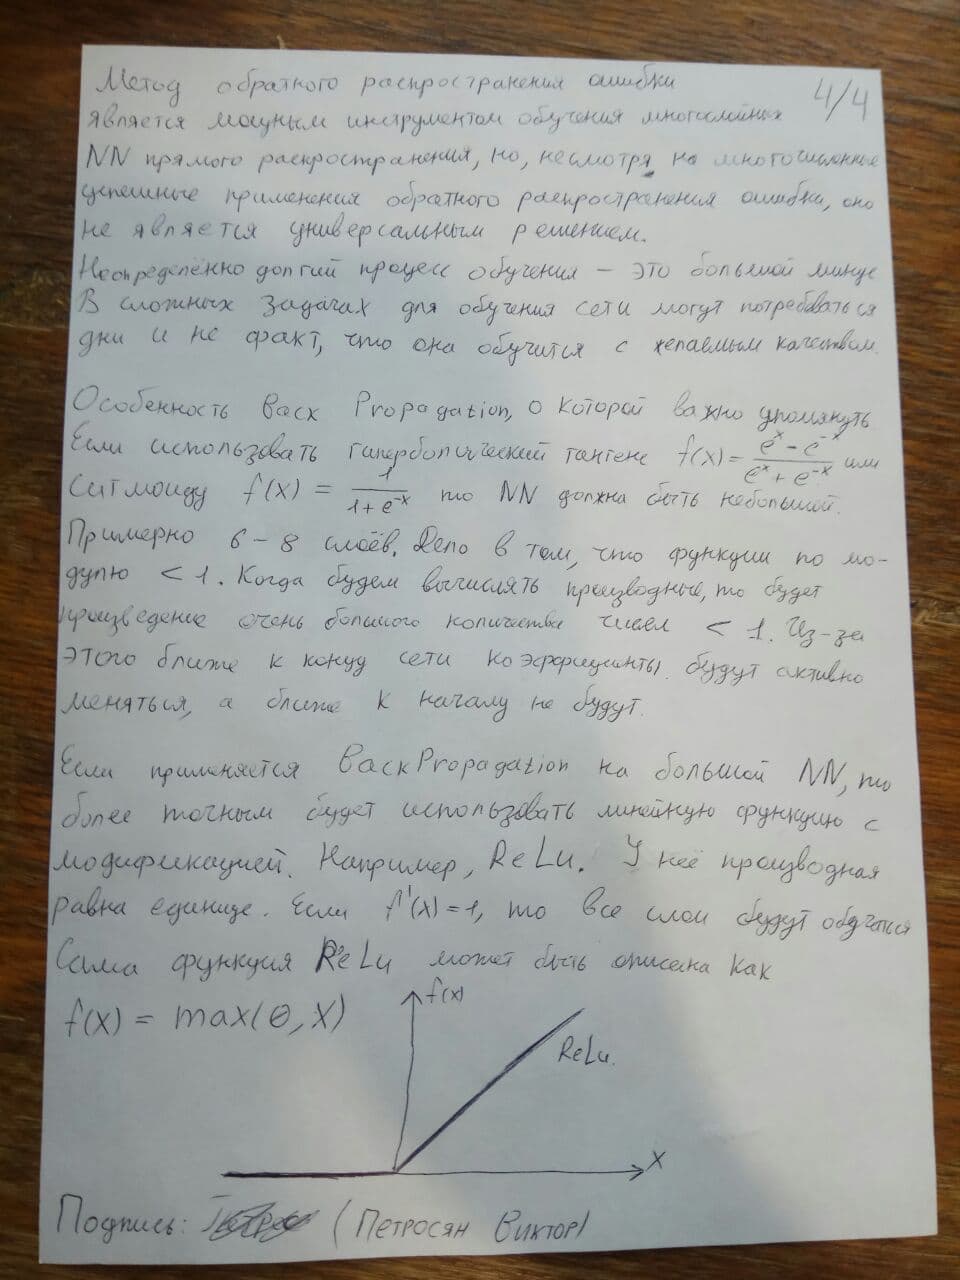 Метод обратного распространения ошибки 4/4
является мощным инструментом обучения многослойных
NN прямого распространения, но, несмотря на многочисленные
успешные применения обратного распространения ошибки, оно
не является универсальным решением.
Неопределённо долгий процесс обучения – это большой минус
В сложных задачах для обучения сети могут потребоваться
дни и не факт, что она обучится с желаемым качеством.
Особенность Back Propagation, о которой важно упомянуть
Если использовать гиперболический тангенс f(x) = (e^x - e^-x)/(e^x + e^-x) или
Сигмоиду f(x) = 1/(1+e^-x) то NN должна быть небольшой.
Примерно 6 – 8 слоёв. Дело в том, что функции по мо-
дулю < 1. Когда будем вычислять производные, то будет
произведение очень большого количества чисел < 1. Из-за
этого ближе к концу сети коэффициенты будут активно
меняться, а ближе к началу не будут.
Если применяется BackPropagation на большой NN, то
более точным будет использовать линейную функцию с
модификацией. Например, ReLu. У неё производная
равна единице. Если f'(x)=1, то все слои будут обучаться
Сама функция ReLu может быть описана как
f(x) = max(0, x)
f(x)
ReLu.
x
Подпись: (Петросян Виктор)